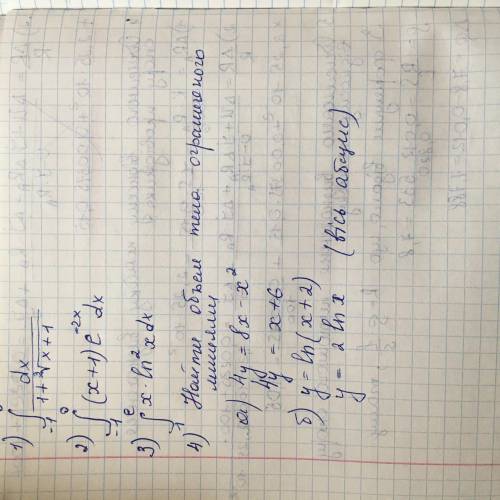 1) ∫₋₁⁰ dx / (1 + ³√(x+1))
2) ∫₋₁⁰ (x+1) e^(-2x) dx
3) ∫₁ᵉ x · ln² x dx
4) Найти объем тела ограниченого
линиями
а) 4y = 8x - x²
4y = x + 6
б) y = ln(x+2)
y = 2 ln x (вісь абсцис)